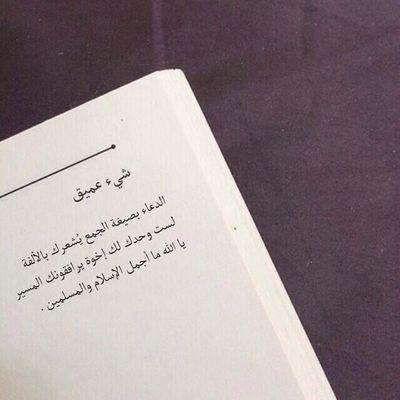 شيء عميق
الدعاء بصيغة الجمع يُشعرك بالألفة
لست وحدك لك إخوة يرافقونك المسير
يا الله ما أجمل الإسلام والمسلمين .